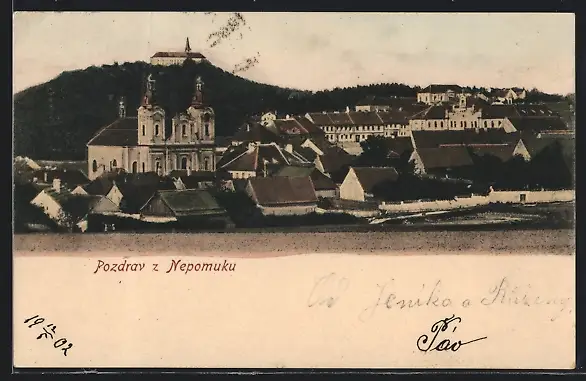 Pozdrav z Nepomuku
Od Jeníka a Růženy
19 12/5 02